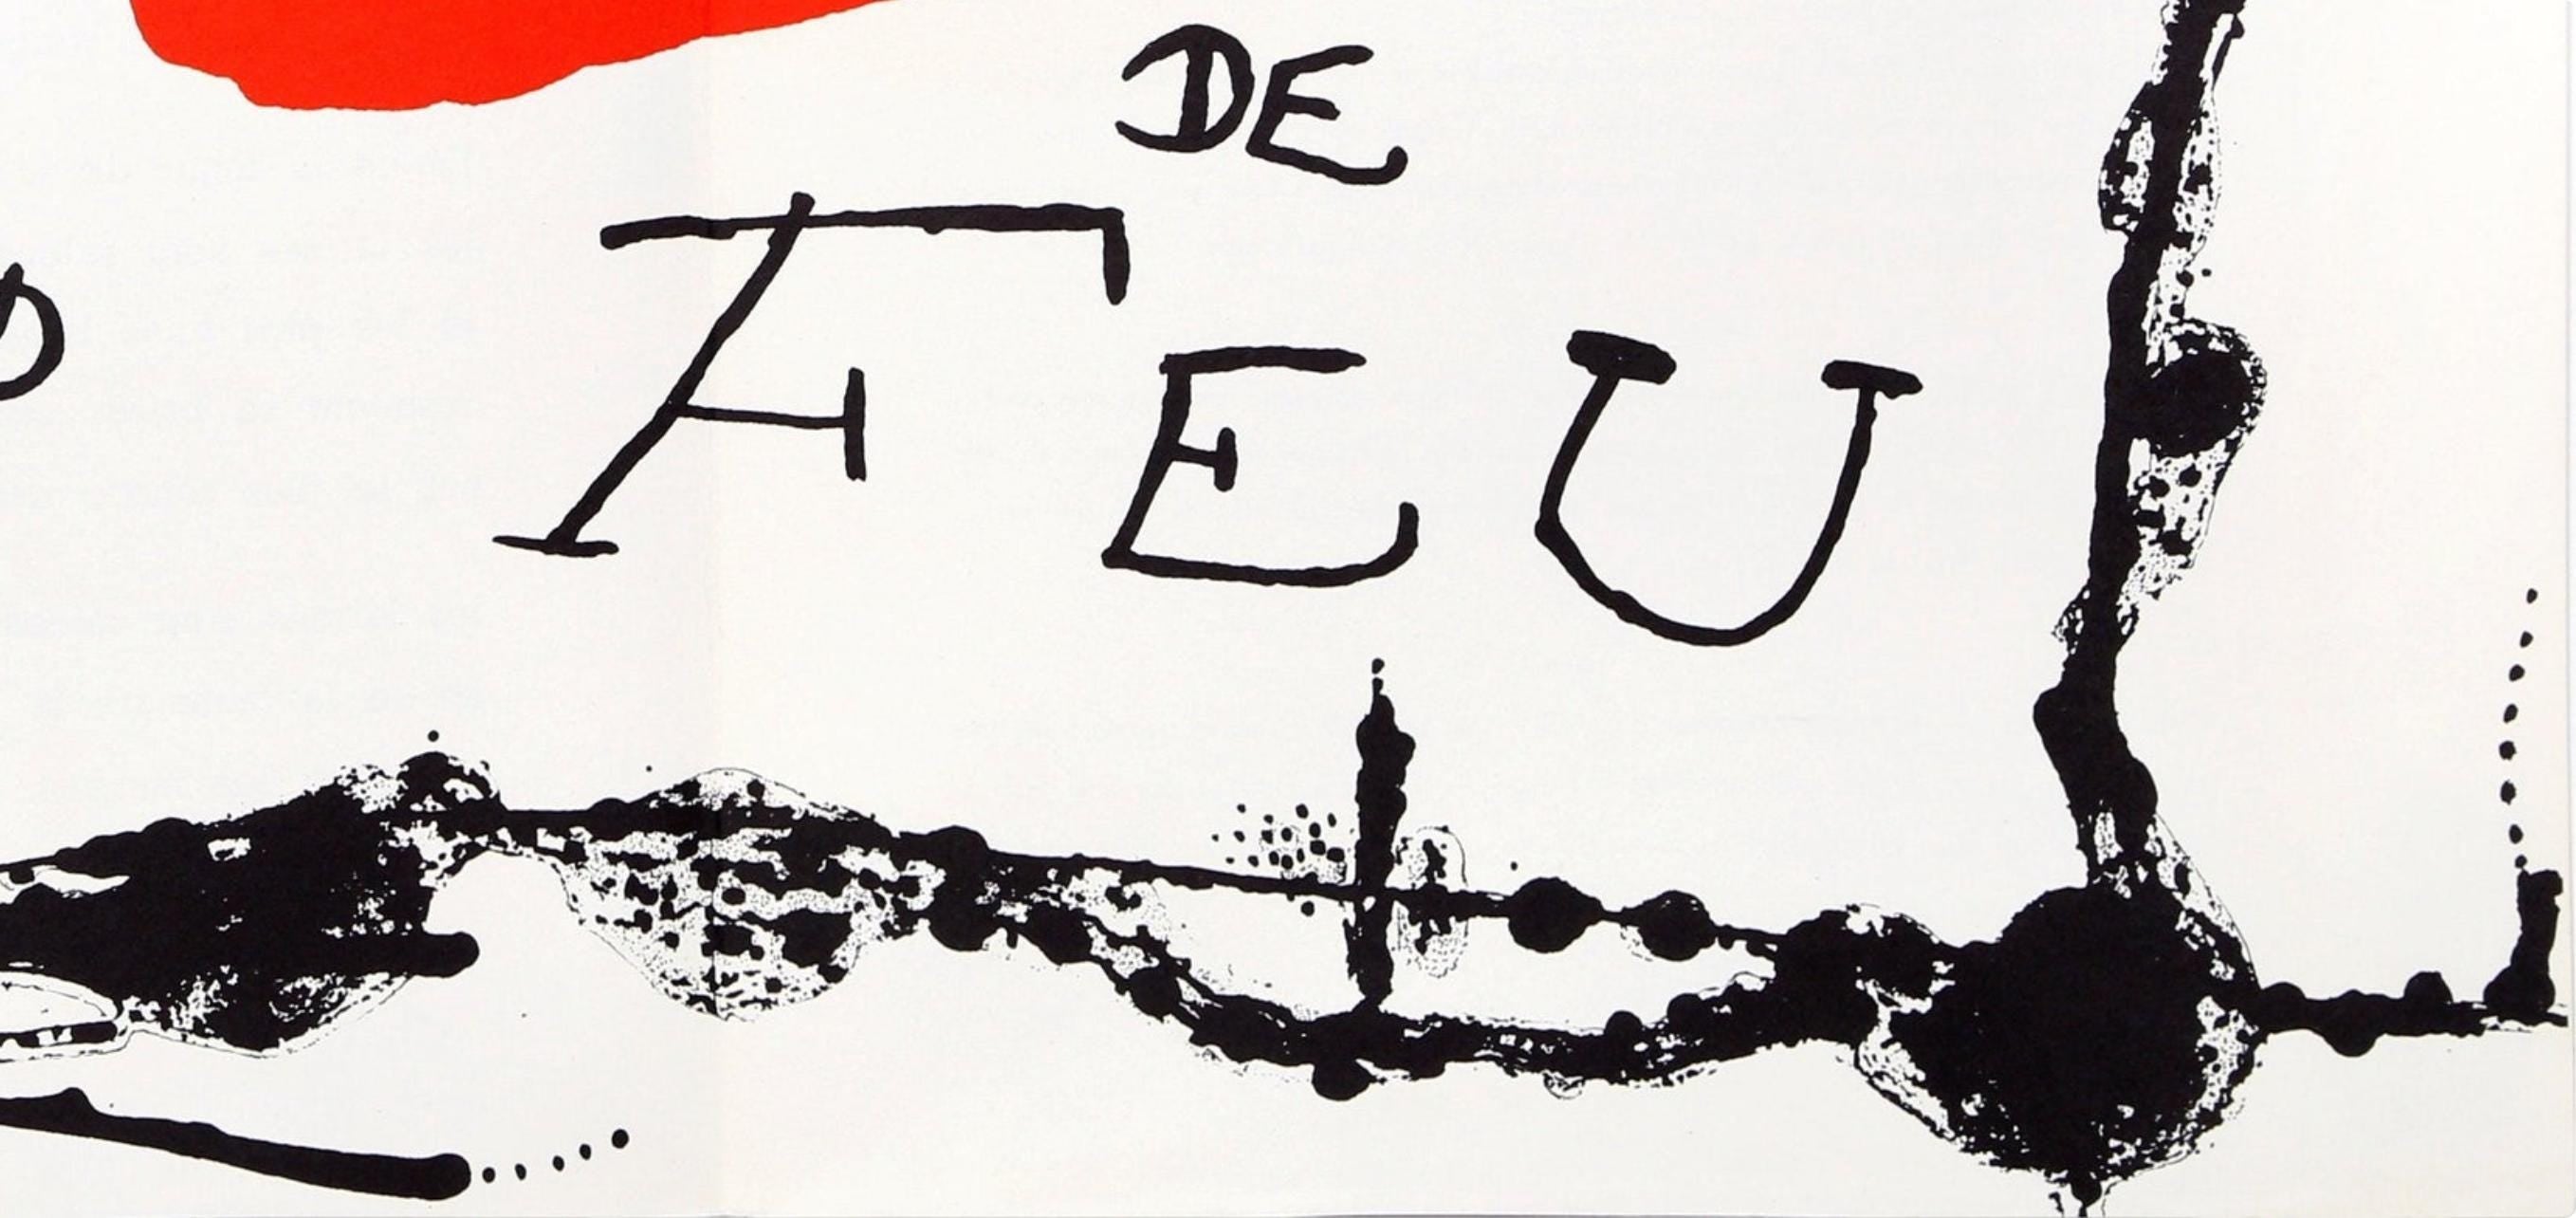 DE
FEU